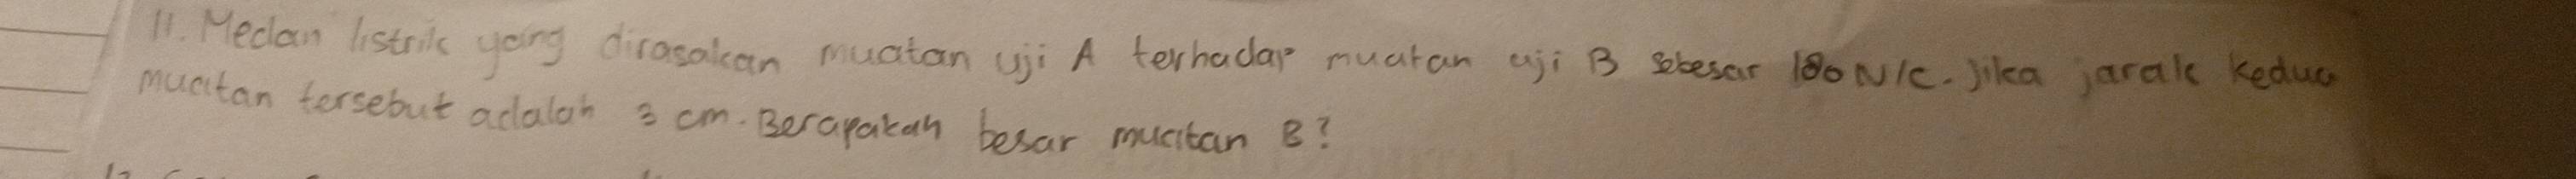 11. Medan listrik yang dirasakan muatan uji A terhadap muatan uji B sebesar 180 N/C. Jika jarak kedua
muatan tersebut adalah 3 cm. Berapakah besar muatan B?